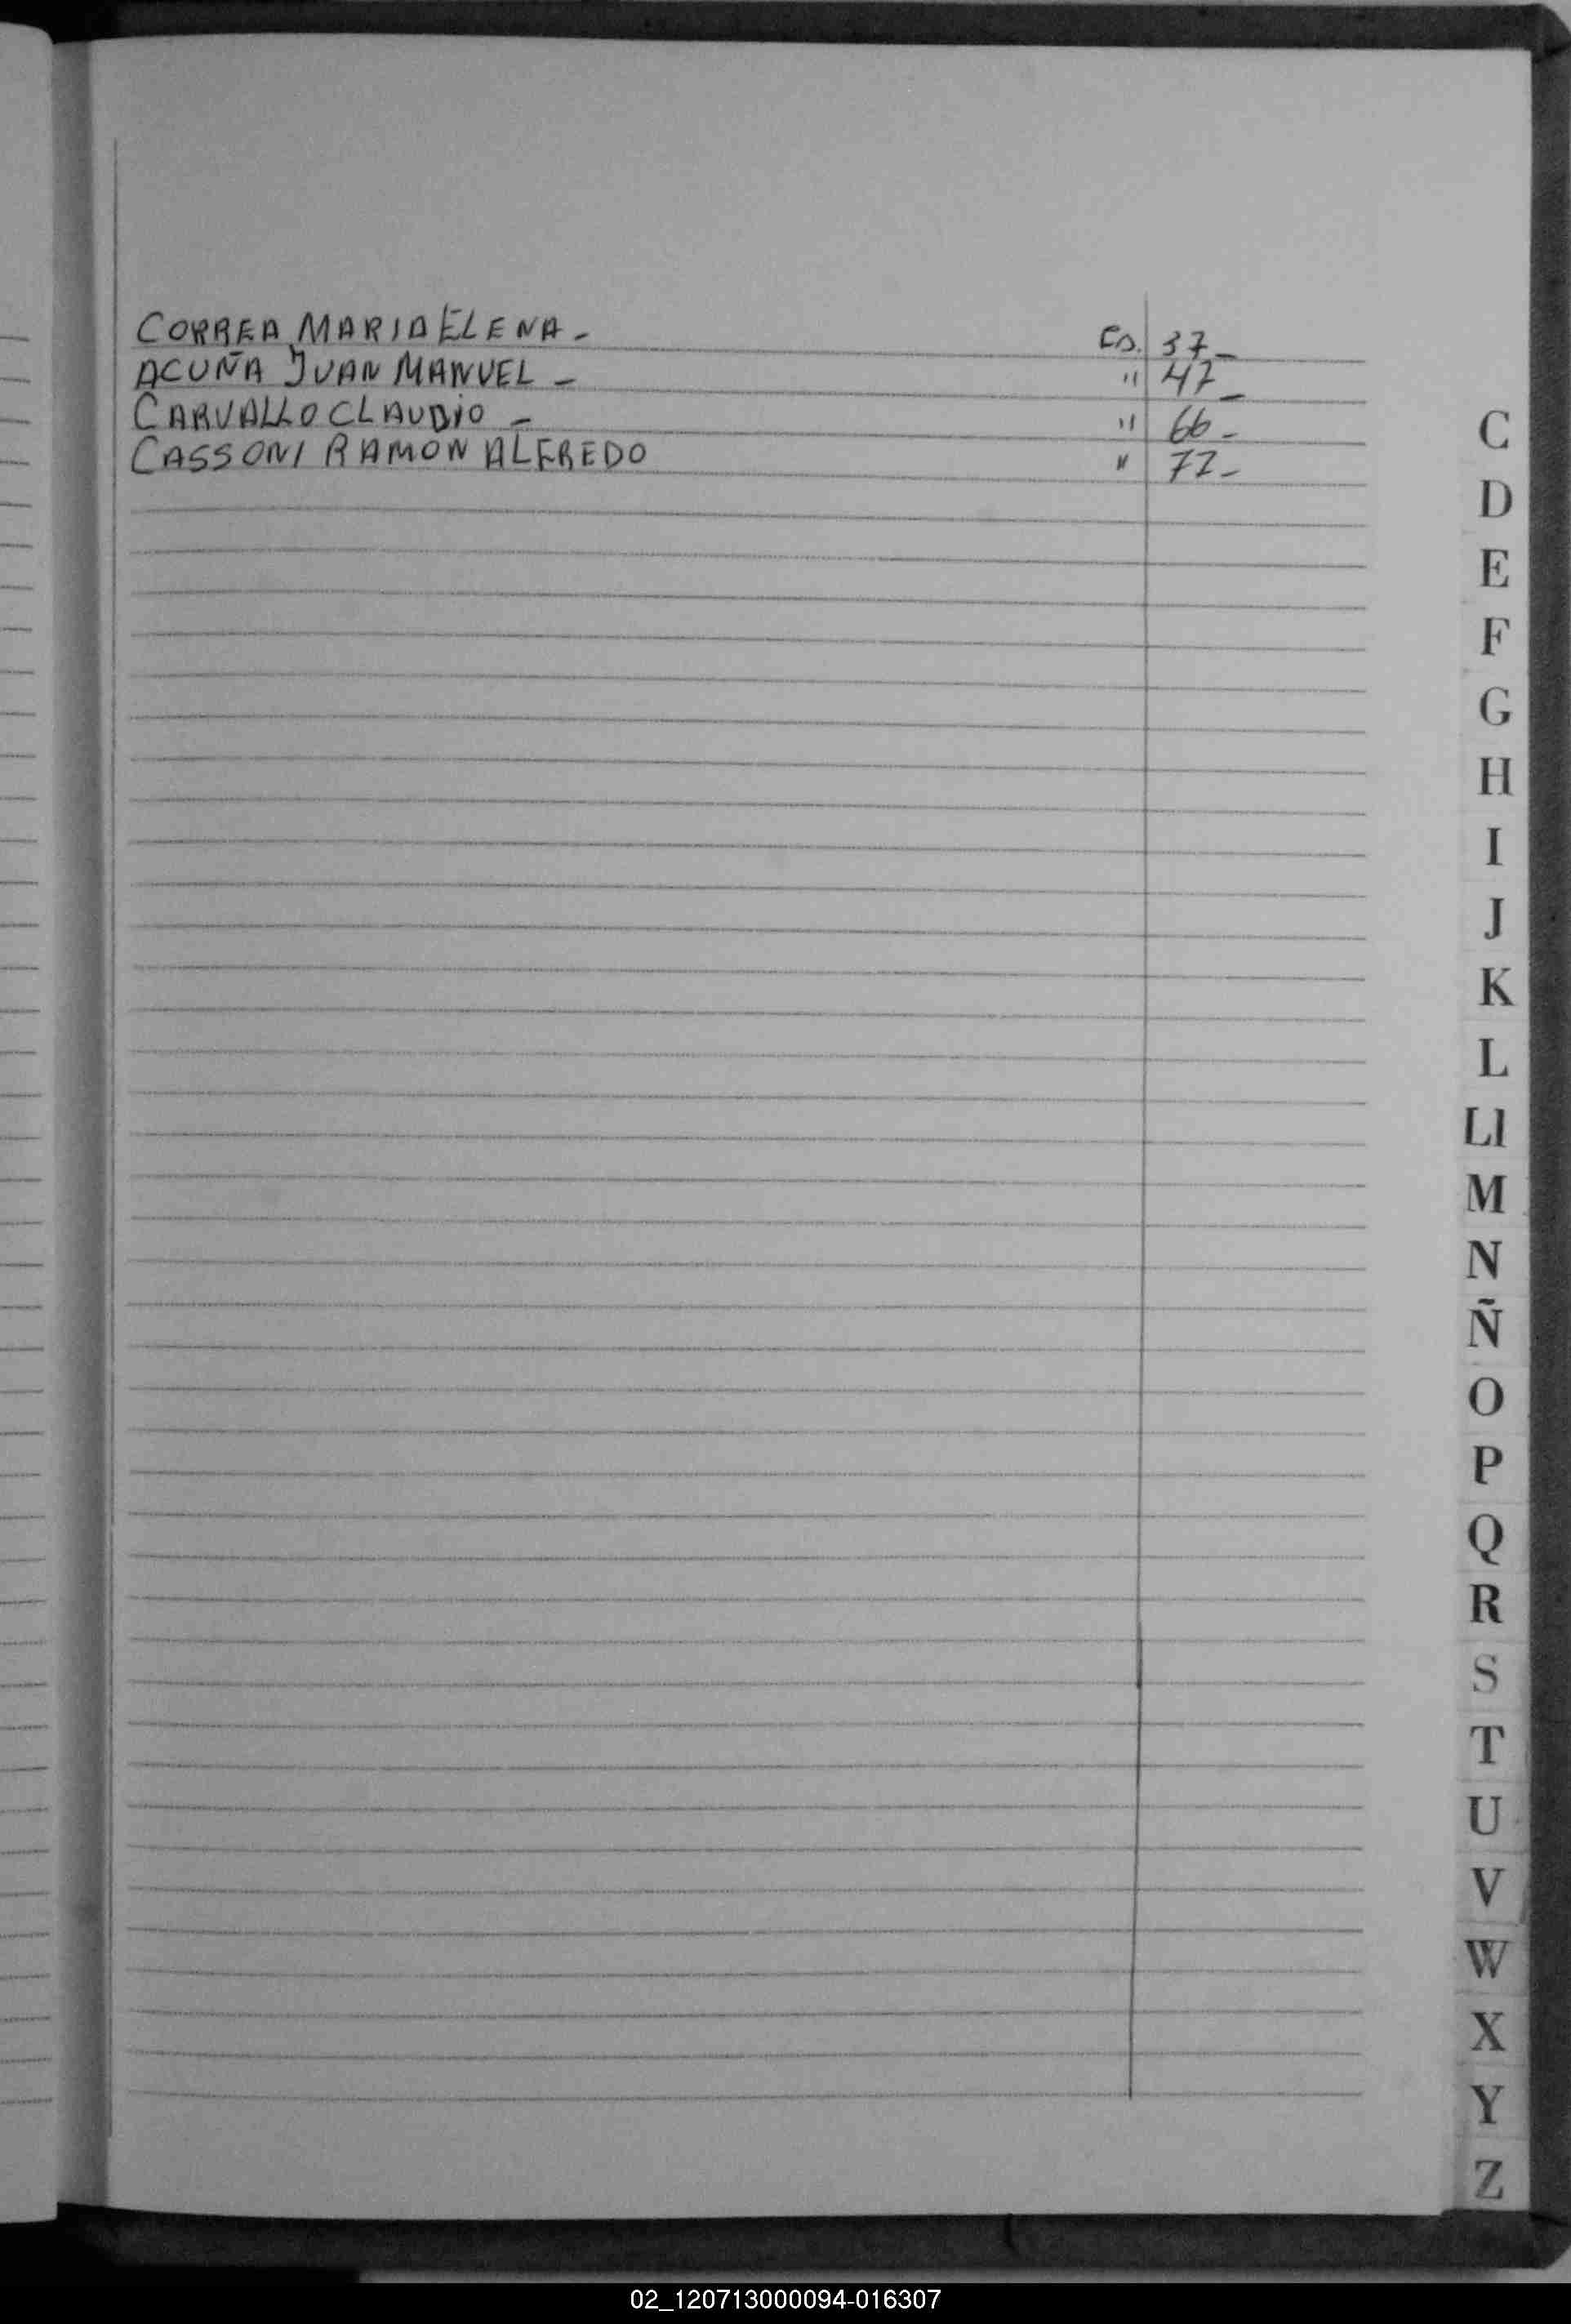 CORREA MARIA ELENA - Fo. 37_
ACUÑA JUAN MANUEL - " 47_
CARVALLO CLAUDIO - " 66_
CASSONI RAMON ALFREDO " 77_
C
D
E
F
G
H
I
J
K
L
Ll
M
N
Ñ
O
P
Q
R
S
T
U
V
W
X
Y
Z
02_120713000094-016307